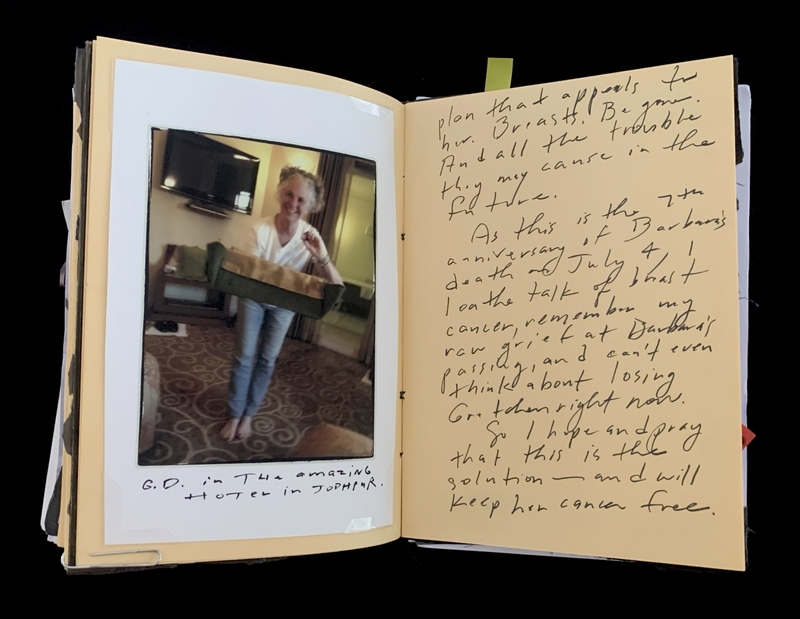 G.D. in THE amazING
HOTEL in JODHPUR.
plan that appeals to
her. Breasts. Be gone.
And all the trouble
they may cause in the
future.
As this is the 7th
anniversary of Barbara's
death on July 4, I
loathe talk of breast
cancer, remember my
raw grief at Barbara's
passing, and can't even
think about losing
Gretchen right now.
So I hope and pray
that this is the
solution — and will
keep her cancer free.